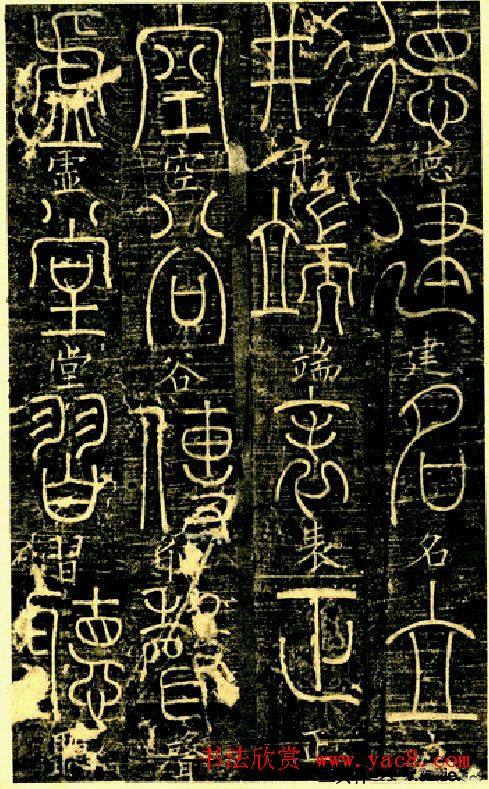 德德建建名名立立
形形端端表表正正
空空谷谷傳傳聲聲
虛虛堂堂習習聽聽
书法欣赏 www.yac8.com